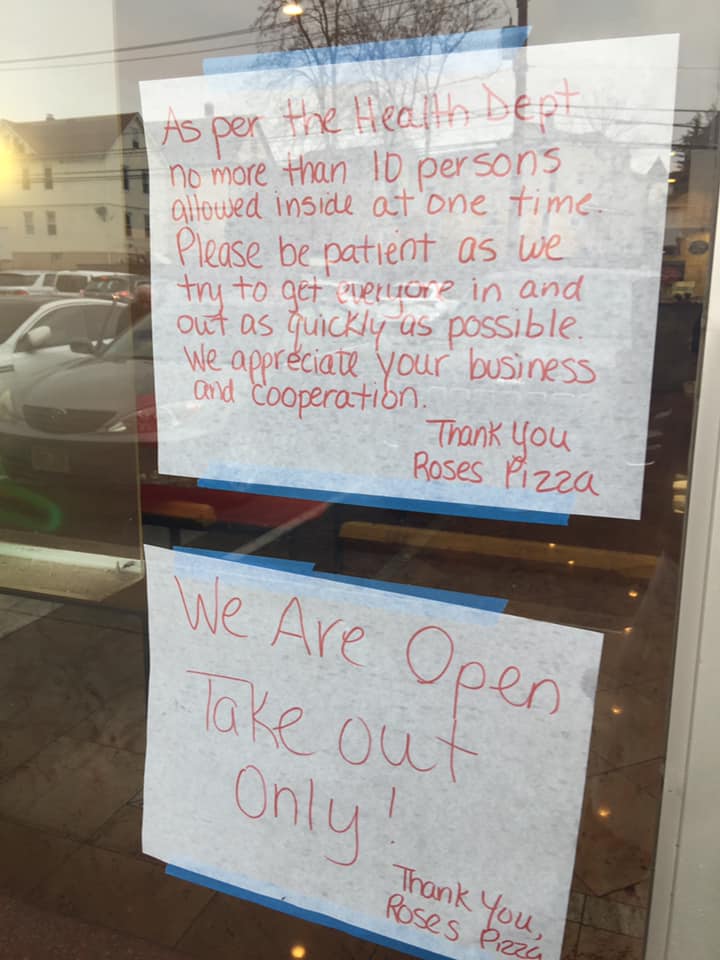 As per the Health Dept
no more than 10 persons
allowed inside at one time.
Please be patient as we
try to get everyone in and
out as quickly as possible.
We appreciate your business
and cooperation.
Thank you
Roses Pizza
We Are Open
Take out
Only!
Thank You,
Roses Pizza